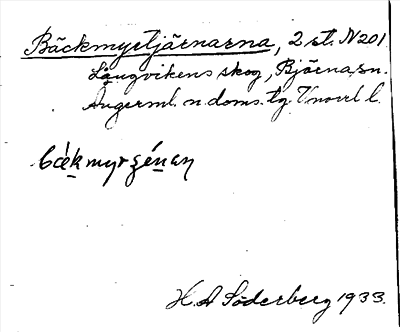 Bäckmyrtjärnarna, 2 st. N201.
Långvikens skog, Björna sn.
Ångerml. n. doms. tg. V:norrl l.
bǽkmyrʒénan
H. A Söderberg 1933.